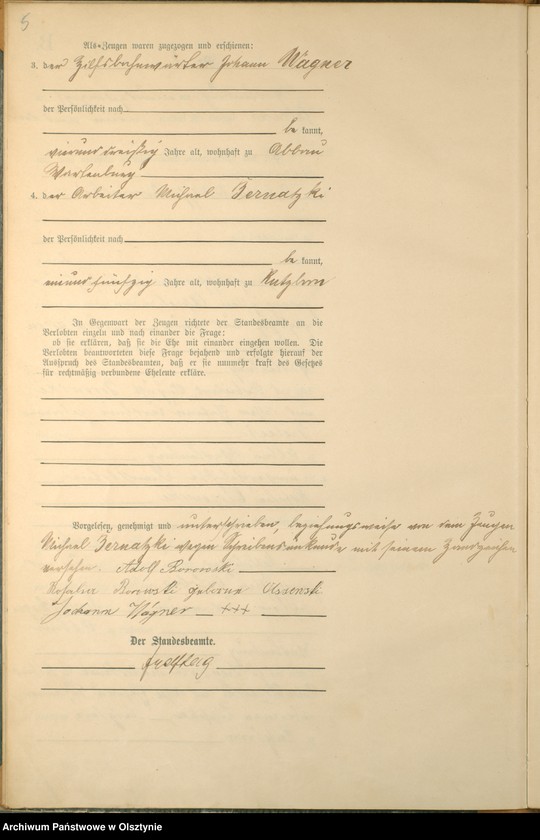 5
Als Zeugen waren zugezogen und erschienen:
3. der Hilfsbahnwärter Johann Wagner
der Persönlichkeit nach
be kannt,
vierunddreißig Jahre alt, wohnhaft zu Abbau
Wartenburg
4. der Arbeiter Michael Bernatzki
der Persönlichkeit nach
be kannt,
einundfünfzig Jahre alt, wohnhaft zu
In Gegenwart der Zeugen richtete der Standesbeamte an die
Verlobten einzeln und nach einander die Frage:
ob sie erklären, daß sie die Ehe mit einander eingehen wollen. Die
Verlobten beantworteten diese Frage bejahend und erfolgte hierauf der
Ausspruch des Standesbeamten, daß er sie nunmehr kraft des Gesetzes
für rechtmäßig verbundene Eheleute erkläre.
Vorgelesen, genehmigt und unterschrieben, beziehungsweise von dem Zeugen
Michael Bernatzki wegen Schreibensunkunde mit seinem Handzeichen
versehen. Adolf Borowski
Borowski geborene
Johann Wagner +++
Der Standesbeamte.
Archiwum Państwowe w Olsztynie